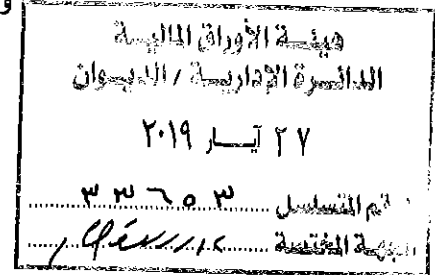 و
هيئـة الأوراق الماليـة
الدائـرة الإداريـة / الديـوان
٢٧ آيـار ٢٠١٩
رقم التسلسل ٣٣٦٥٣
الجهة المختصة